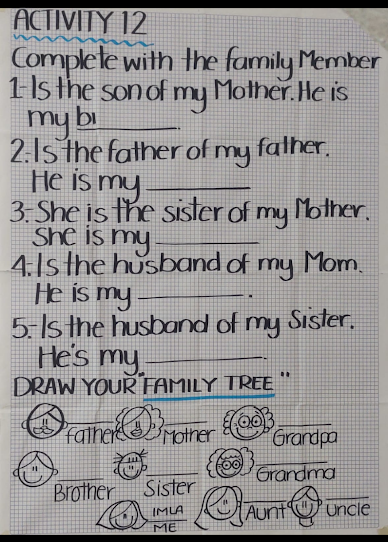 ACTIVITY 12
Complete with the family Member
1-Is the son of my Mother. He is
my bi________.
2.Is the father of my father.
He is my ________
3.-She is the sister of my Mother.
She is my ________
4.Is the husband of my Mom.
He is my ________.
5-Is the husband of my Sister.
He's my ________.
DRAW YOUR "FAMILY TREE"
Father Mother Grandpa
Brother Sister Grandma
IMLA
ME
Aunt Uncle